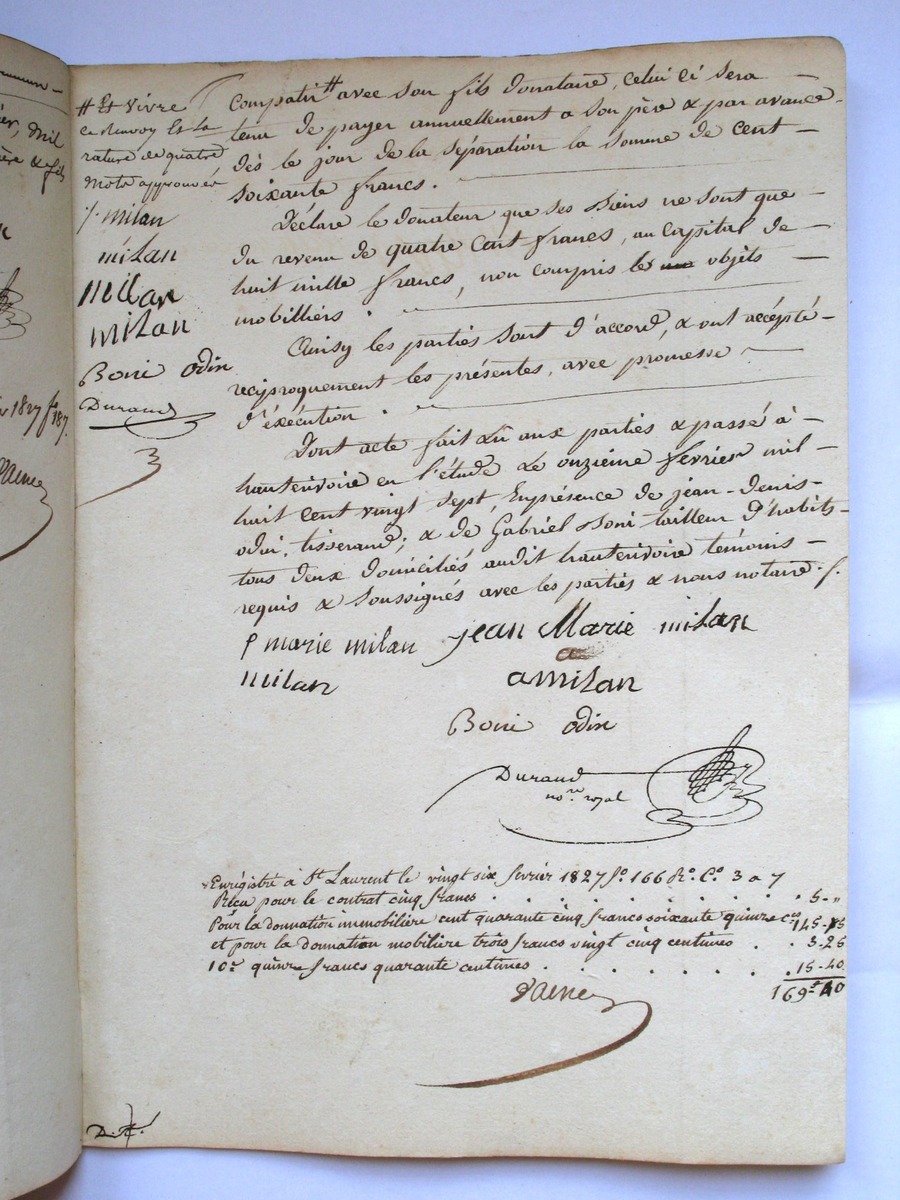 # Et vivre
ce renvoy Et la
rature de quatre
mots approuvés
/. milan
milan
milan
milan
Boni odin
Durand
compatir # avec son fils donataire, celui ci sera
tenu de payer annuellement a son père & par avance
dès le jour de la séparation la somme de cent
soixante francs.
Déclare le donateur que ses biens ne sont que
du revenu de quatre Cent francs, au capital de
huit mille francs, non compris les objets
mobilliers.
Ainsy les parties sont d'accord, & ont accépté
réciproquement les présentes, avec promesse
d'éxécution.
Dont acte fait Lu aux parties & passé à
hauterivoire en l'étude Le onzième février mil
huit cent vingt sept, En présence de jean-denis
odin, tisserand; & de Gabriel Boni tailleur d'habits
tous deux domiciliés audit hauterivoire témoins
requis & soussignés avec les parties & nous notaire ./.
p marie milan jean Marie milan
milan amilan
Boni odin
Durand
nore. royal
Enrégistré à St Laurent le vingt six fevrier 1827 fo. 166 Ro. Co. 3 a 7
Réçu pour le contrat cinq francs . . . . . . . . 5 - "
Pour la donnation immobilière cent quarante cinq francs soixante quinze ces 145-75
et pour la donnation mobilière trois francs vingt cinq centimes . . 3-25
10e quinze francs quarante centimes . . . . . . . 15-40
169f 40